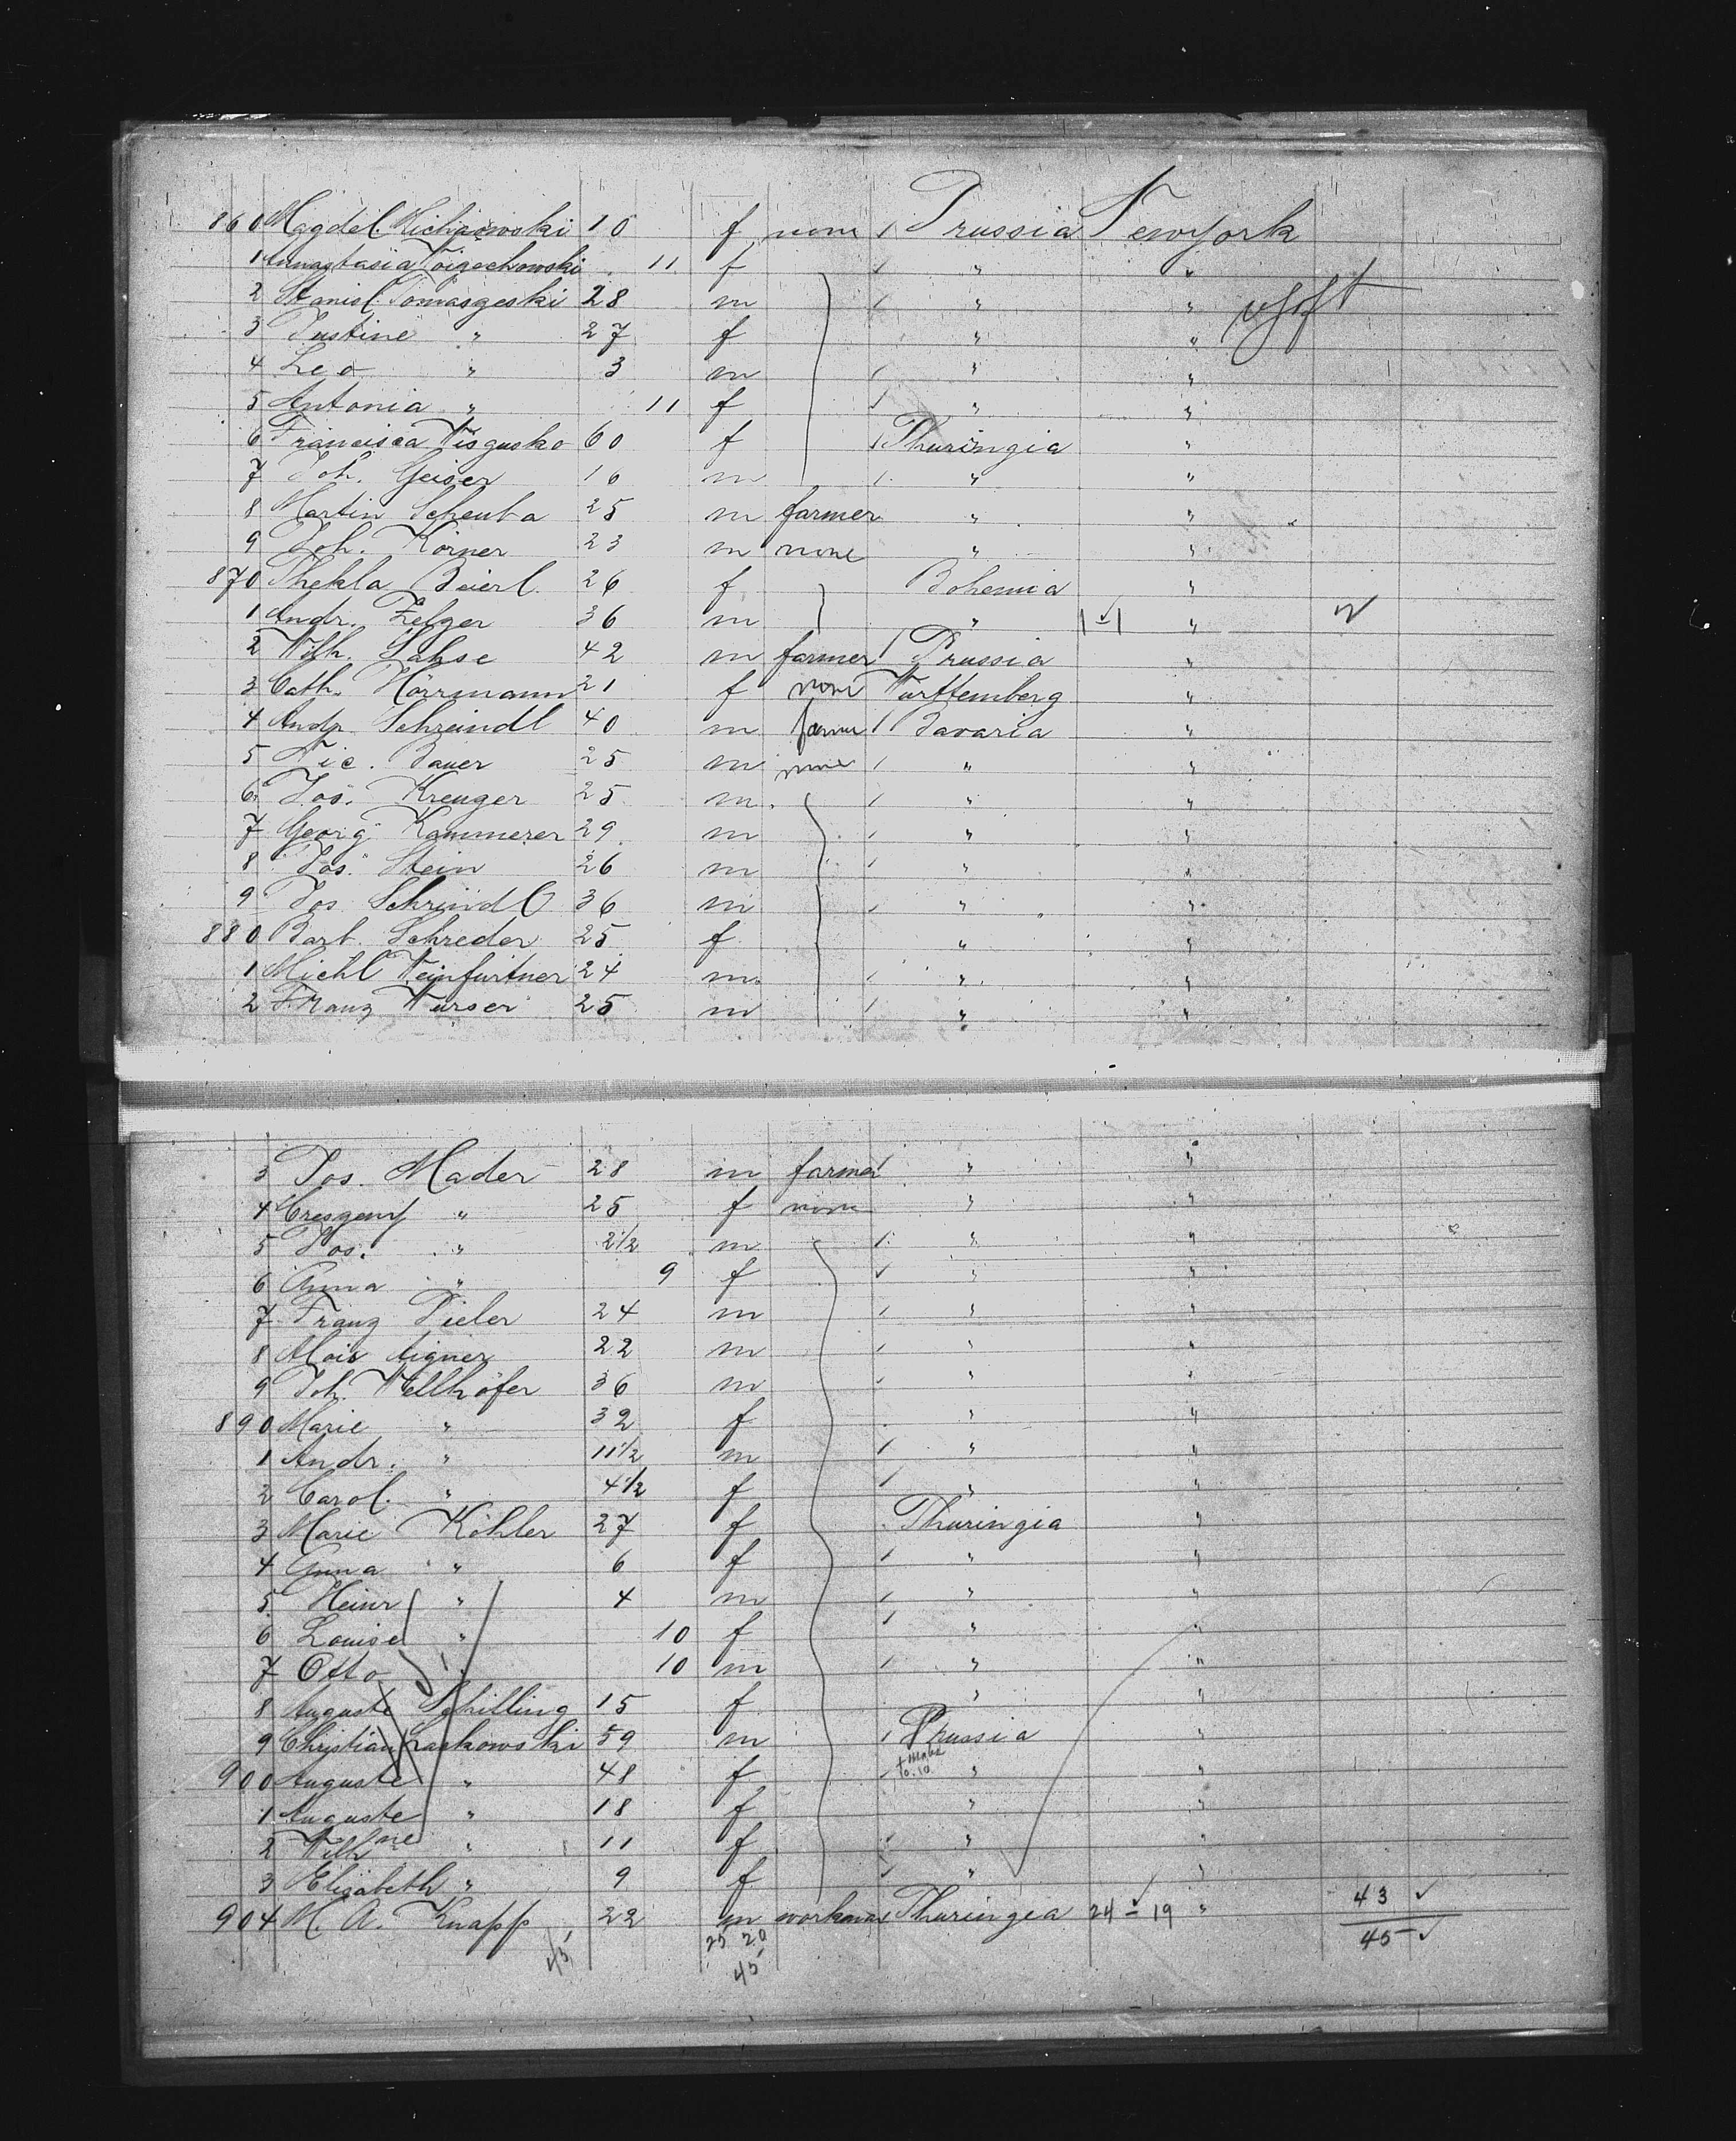 860 Magdel. Michaiowski 10 f none / Prussia Newyork
1 Annastasia Woizechowski 11 f / " "
2 Stanisl. Tomasgeski 28 m / " "
3 Justine " 27 f " "
4 Leo " 3 m / " "
5 Antonia " 11 f / " "
6 Francisca Wisgusko 60 f / Thuringia "
7 Joh. Geiser 16 m / " "
8 Martin Scheuba 25 m farmer " "
9 Joh. Körner 23 m none " "
870 Thekla Beierl 26 f Bohemia "
1 Andr. Zelger 36 m " 1 - 1 "
2 Wilh. Sahse 42 m farmer / Prussia "
3 Cath. Hörrmann 21 f none Württemberg "
4 Andr. Schreindl 40 m farmer / Bavaria "
5 Nic. Bauer 25 m none / " "
6 Jos. Kreuger 25 m / " "
7 Georg Kammerer 29 m / " "
8 Jos. Stein 26 m / " "
9 Jos Schrindl 36 m / " "
880 Barb. Schreder 25 f " "
1 Michl Weinfurtner 24 m / " "
2 Franz Wurser 25 m / " "
3 Jos. Mader 28 m farmer / " "
4 Cresgenz " 25 f none " "
5 Jos. " 2 1/2 m / " "
6 Anna " 9 f / " "
7 Franz Pieler 24 m / " "
8 Alois Aigner 22 m / " "
9 Joh. Wellhöfer 36 m / " "
890 Marie " 32 f " "
1 Andr. " 11 1/2 m / " "
2 Carol. " 4 1/2 f / " "
3 Marie Köhler 27 f Thuringia "
4 Anna " 6 f / " "
5 Heinr " 4 m / " "
6 Louise " 10 f / " "
7 Otto " 10 m / " "
8 Auguste Schilling 15 f " "
9 Christian Laskowski 59 m / Prussia "
900 Auguste " 48 f " "
1 Auguste " 18 f " "
2 Wilhne " 11 f / " "
3 Elisabeth " 9 f / " "
904 M. A. Knapp 22 m workman Thuringia 24 - 19 " 43
45 25 20 45
45